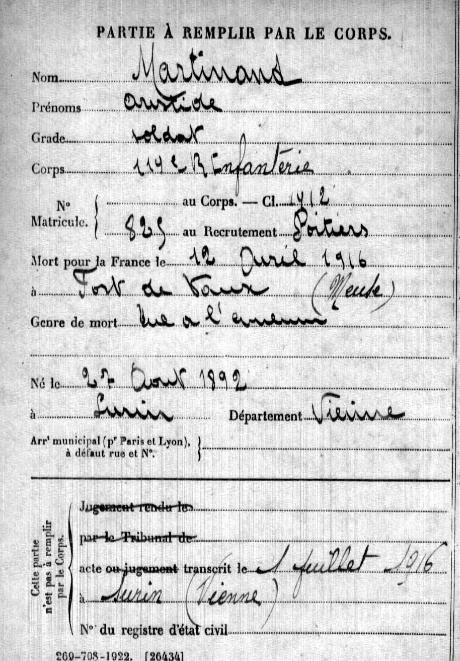 PARTIE À REMPLIR PAR LE CORPS.
Nom Martinaud
Prénoms Aristide
Grade soldat
Corps 114e R Infanterie
N° Matricule. au Corps. — Cl. 1912
825 au Recrutement Poitiers
Mort pour la France le 12 Avril 1916
à Fort de Vaux (Meuse)
Genre de mort tué a l'ennemi
Né le 27 Aout 1892
à Surin Département Vienne
Arrt municipal (pr Paris et Lyon),
à défaut rue et N°.
Cette partie
n'est pas à remplir
par le Corps.
Jugement rendu le
par le Tribunal de
acte ou jugement transcrit le 1 juillet 1916
à Surin (Vienne)
N° du registre d'état civil
269-708-1922. [26434]